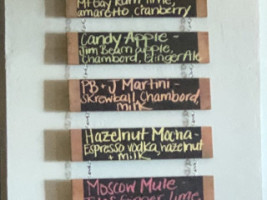 Mt Gay Rum lime,
amaretto cranberry
Candy Apple -
Jim Beam apple,
Chambord, & Ginger Ale
PB + J Martini -
Skrewball, Chambord,
milk
Hazelnut Mocha -
Espresso vodka, hazelnut
+ milk
Moscow Mule
lime